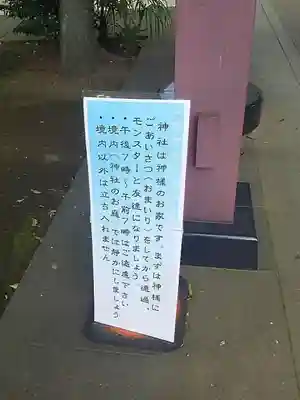 神社は神様のお家です。まずは神様に
ごあいさつ（おまいり）をしてから道過、
モンスターと友達になりましょう
・午後7時～午前7時はご遠慮下さい
・境内（神社のお庭）では静かにしましょう
・境内以外は立ち入れません